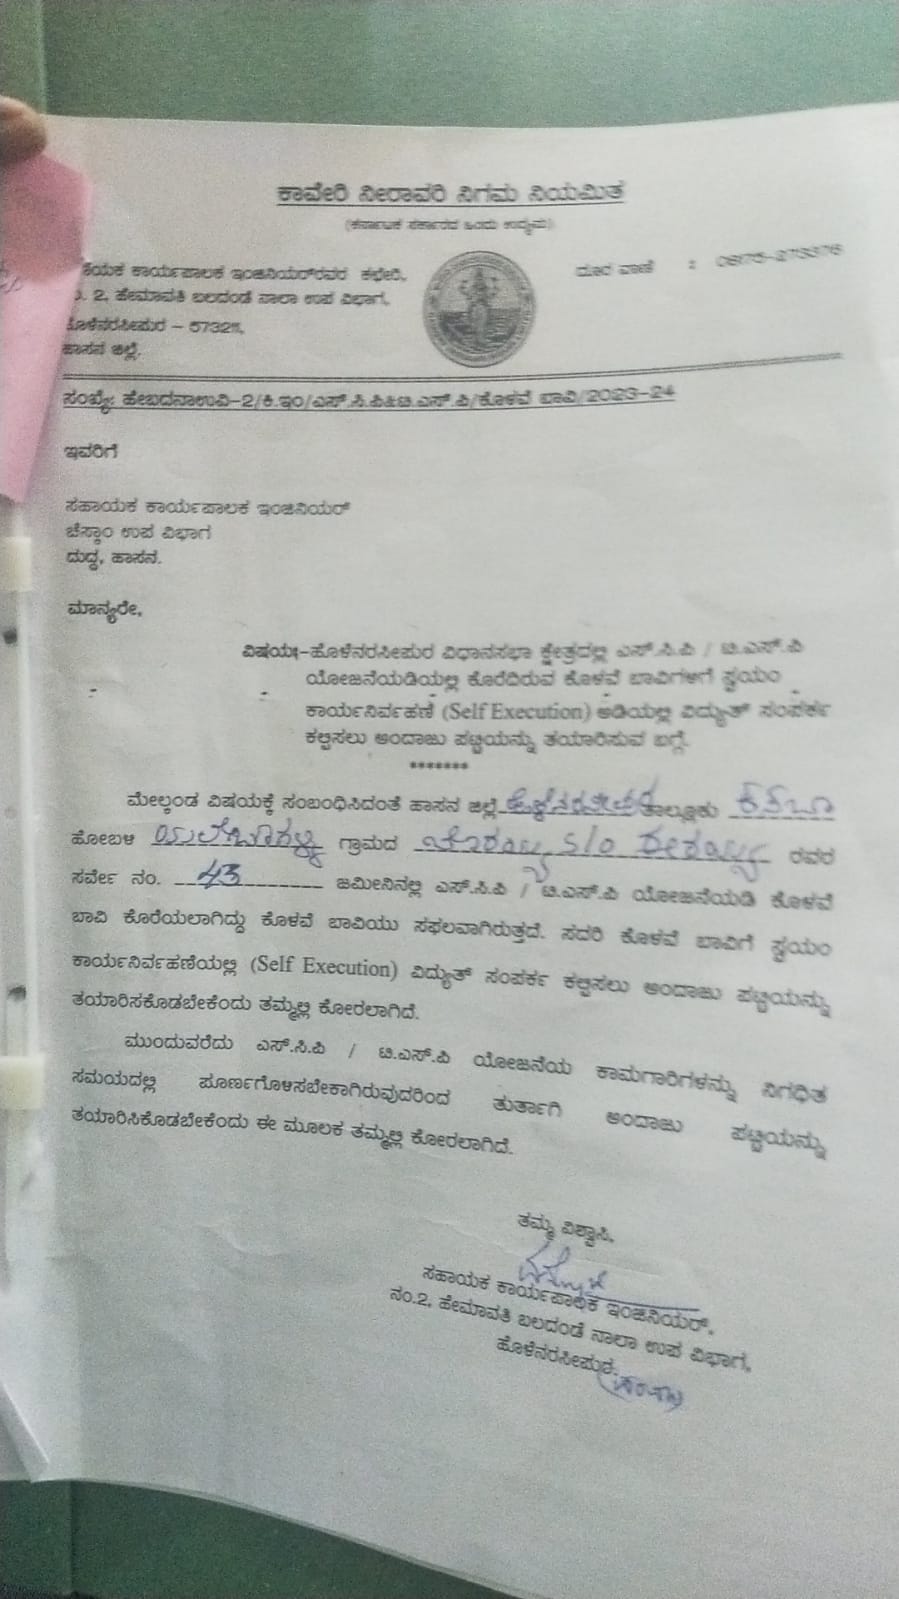 ಕಾವೇರಿ ನೀರಾವರಿ ನಿಗಮ ನಿಯಮಿತ
(ಕರ್ನಾಟಕ ಸರ್ಕಾರದ ಒಂದು ಉದ್ಯಮ)
ಕಾರ್ಯಪಾಲಕ ಇಂಜಿನಿಯರ್‌ರವರ ಕಛೇರಿ,
2, ಹೇಮಾವತಿ ಬಲದಂಡೆ ನಾಲಾ ಉಪ ವಿಭಾಗ,
ಹೊಳೆನರಸೀಪುರ – 573211,
ಹಾಸನ ಜಿಲ್ಲೆ.
ದೂರ ವಾಣಿ : 08175-273376
ಸಂಖ್ಯೆ: ಹೇಬದನಾಉವಿ-2/ಕಿ.ಇಂ/ಎಸ್.ಸಿ.ಪಿ&ಟಿ.ಎಸ್.ಪಿ/ಕೊಳವೆ ಬಾವಿ/2023-24
ಇವರಿಗೆ
ಸಹಾಯಕ ಕಾರ್ಯಪಾಲಕ ಇಂಜಿನಿಯರ್
ಚೆಸ್ಕಾಂ ಉಪ ವಿಭಾಗ
ದುದ್ದ, ಹಾಸನ.
ಮಾನ್ಯರೇ,
ವಿಷಯ:-ಹೊಳೆನರಸೀಪುರ ವಿಧಾನಸಭಾ ಕ್ಷೇತ್ರದಲ್ಲಿ ಎಸ್.ಸಿ.ಪಿ / ಟಿ.ಎಸ್.ಪಿ
ಯೋಜನೆಯಡಿಯಲ್ಲಿ ಕೊರೆದಿರುವ ಕೊಳವೆ ಬಾವಿಗಳಿಗೆ ಸ್ವಯಂ
ಕಾರ್ಯನಿರ್ವಹಣೆ (Self Execution) ಅಡಿಯಲ್ಲಿ ವಿದ್ಯುತ್ ಸಂಪರ್ಕ
ಕಲ್ಪಿಸಲು ಅಂದಾಜು ಪಟ್ಟಿಯನ್ನು ತಯಾರಿಸುವ ಬಗ್ಗೆ.
*******
ಮೇಲ್ಕಂಡ ವಿಷಯಕ್ಕೆ ಸಂಬಂಧಿಸಿದಂತೆ ಹಾಸನ ಜಿಲ್ಲೆ ಹೊಳೆನರಸೀಪುರ ತಾಲ್ಲೂಕು ಕಸಬಾ
ಹೋಬಳಿ ಗ್ರಾಮದ S/o ರವರ
ಸರ್ವೇ ನಂ. 43 ಜಮೀನಿನಲ್ಲಿ ಎಸ್.ಸಿ.ಪಿ / ಟಿ.ಎಸ್.ಪಿ ಯೋಜನೆಯಡಿ ಕೊಳವೆ
ಬಾವಿ ಕೊರೆಯಲಾಗಿದ್ದು ಕೊಳವೆ ಬಾವಿಯು ಸಫಲವಾಗಿರುತ್ತದೆ. ಸದರಿ ಕೊಳವೆ ಬಾವಿಗೆ ಸ್ವಯಂ
ಕಾರ್ಯನಿರ್ವಹಣೆಯಲ್ಲಿ (Self Execution) ವಿದ್ಯುತ್ ಸಂಪರ್ಕ ಕಲ್ಪಿಸಲು ಅಂದಾಜು ಪಟ್ಟಿಯನ್ನು
ತಯಾರಿಸಕೊಡಬೇಕೆಂದು ತಮ್ಮಲ್ಲಿ ಕೋರಲಾಗಿದೆ.
ಮುಂದುವರೆದು ಎಸ್.ಸಿ.ಪಿ / ಟಿ.ಎಸ್.ಪಿ ಯೋಜನೆಯ ಕಾಮಗಾರಿಗಳನ್ನು ನಿಗಧಿತ
ಸಮಯದಲ್ಲಿ ಪೂರ್ಣಗೊಳಿಸಬೇಕಾಗಿರುವುದರಿಂದ ತುರ್ತಾಗಿ ಅಂದಾಜು ಪಟ್ಟಿಯನ್ನು
ತಯಾರಿಸಿಕೊಡಬೇಕೆಂದು ಈ ಮೂಲಕ ತಮ್ಮಲ್ಲಿ ಕೋರಲಾಗಿದೆ.
ತಮ್ಮ ವಿಶ್ವಾಸಿ,
ಸಹಾಯಕ ಕಾರ್ಯಪಾಲಕ ಇಂಜಿನಿಯರ್,
ನಂ.2, ಹೇಮಾವತಿ ಬಲದಂಡೆ ನಾಲಾ ಉಪ ವಿಭಾಗ,
ಹೊಳೆನರಸೀಪುರ.